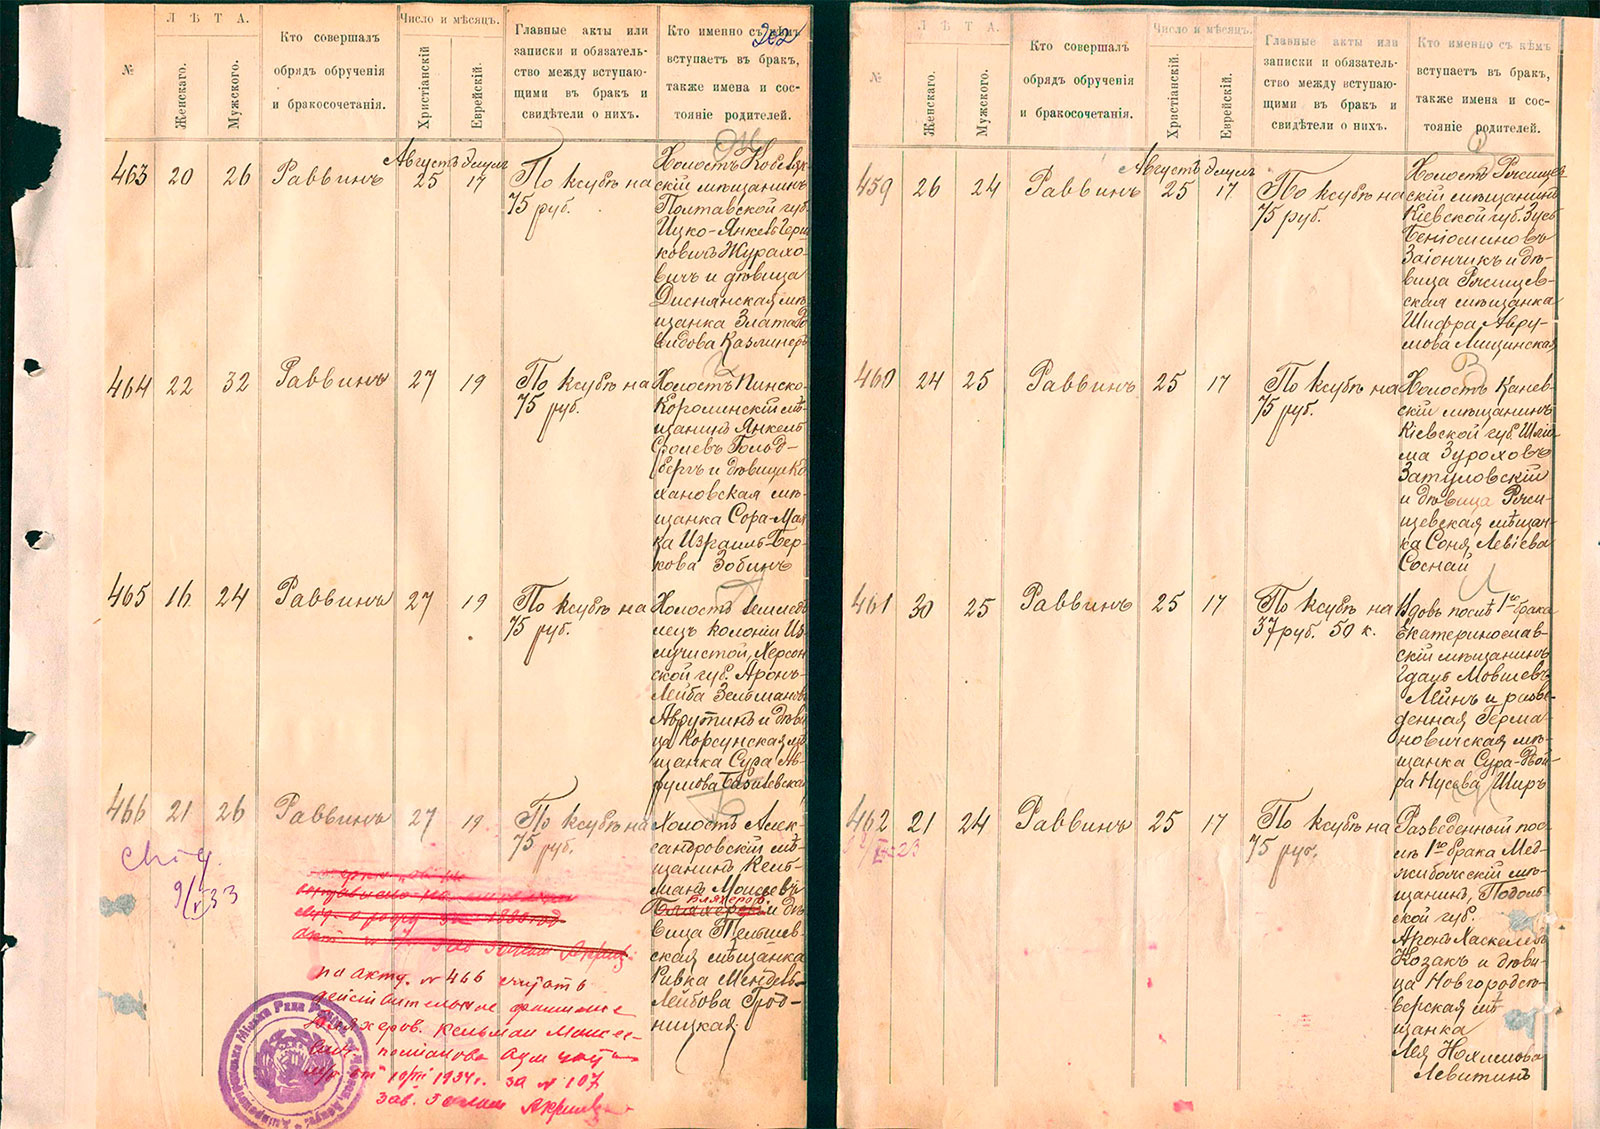 202
Л Ѣ Т А.
Число и мѣсяцъ.
№
Женскаго.
Мужского.
Кто совершалъ
обрядъ обрученія
и бракосочетанія.
Христіанскій
Еврейскій.
Главные акты или
записки и обязатель-
ство между вступаю-
щими въ бракъ и
свидѣтели о нихъ.
Кто именно съ кѣмъ
вступаетъ въ бракъ,
также имена и сос-
тояніе родителей.
Августъ Элулъ
463 20 26 Раввинъ 25 17 По ксубѣ на
75 руб.
Холостъ Кобеляк-
скій мѣщанинъ
Полтавской губ.
Ицко-Янкель Герш-
ковичъ Журахо-
вичъ и дѣвица
Диснянская мѣ-
щанка Злата До-
видова Казлинеръ
464 22 32 Раввинъ 27 19 По ксубѣ на
75 руб.
Холостъ Пинско-
Каролинскій мѣ-
щанинъ Янкель
Сролевъ Гольд-
бергъ и дѣвица Ко-
хановская мѣ-
щанка Сора-Мал-
ка Израиль-Бер-
кова Зобинъ
465 16 24 Раввинъ 27 19 По ксубѣ на
75 руб.
Холостъ земледѣ-
лецъ колоніи Из-
лучистой, Херсон-
ской губ. Аронъ-
Лейба Зельмановъ
Аврутинъ и дѣви-
ца Корсунская мѣ-
щанка Сура Ав-
румова Базилевская
466 21 26 Раввинъ 27 19 По ксубѣ на
75 руб.
Холостъ Алек-
сандровскій мѣ-
щанинъ Кель-
манъ Моисеевъ
Бляхеров.
и дѣ-
вица Тельшев-
ская мѣщанка
Ривка Мендель-
Лейбова Грод-
ницкая.
9/V 33
по акту № 466 считать
действительное фамилие
Бляхеров Кельман Моисее-
вич
от 10/III 1934 г. за № 107
зав. Загсом
Л Ѣ Т А.
Число и мѣсяцъ.
№
Женскаго.
Мужского.
Кто совершалъ
обрядъ обрученія
и бракосочетанія.
Христіанскій.
Еврейскій.
Главные акты или
записки и обязатель-
ство между вступаю-
щими въ бракъ и
свидѣтели о нихъ.
Кто именно съ кѣмъ
вступаетъ въ бракъ,
также имена и сос-
тояніе родителей.
Августъ Элулъ
459 26 24 Раввинъ 25 17 По ксубѣ на
75 руб.
Холостъ Ржищев-
скій мѣщанинъ
Кіевской губ. Зусь
Беніоминовъ
Заіончикъ и дѣ-
вица Ржищев-
ская мѣщанка
Шифра Авру-
мова Лищинская
460 24 25 Раввинъ 25 17 По ксубѣ на
75 руб.
Холостъ Канев-
скій мѣщанинъ
Кіевской губ. Шлио-
ма Зуроховъ
Затуловскій
и дѣвица Ржи-
щевская мѣщан-
ка Соня Левіева
Соснай
461 30 25 Раввинъ 25 17 По ксубѣ на
37 руб. 50 к.
Вдовъ послѣ 1го брака
Екатеринослав-
скій мѣщанинъ
Гдаль Мовшевъ
Лейнъ и разве-
денная Герма-
новичская мѣ-
щанка Сура-Вой-
ра Нусева Ширъ
462 21 24 Раввинъ 25 17 По ксубѣ на
75 руб.
Разведенный пос-
лѣ 1го брака Мед-
жибожскій мѣ-
щанинъ, Подоль-
ской губ.
Аронъ Хаскелевъ
Козакъ и дѣви-
ца Новгородсѣ-
верская мѣ-
щанка
Лея Нохимова
Левитинъ